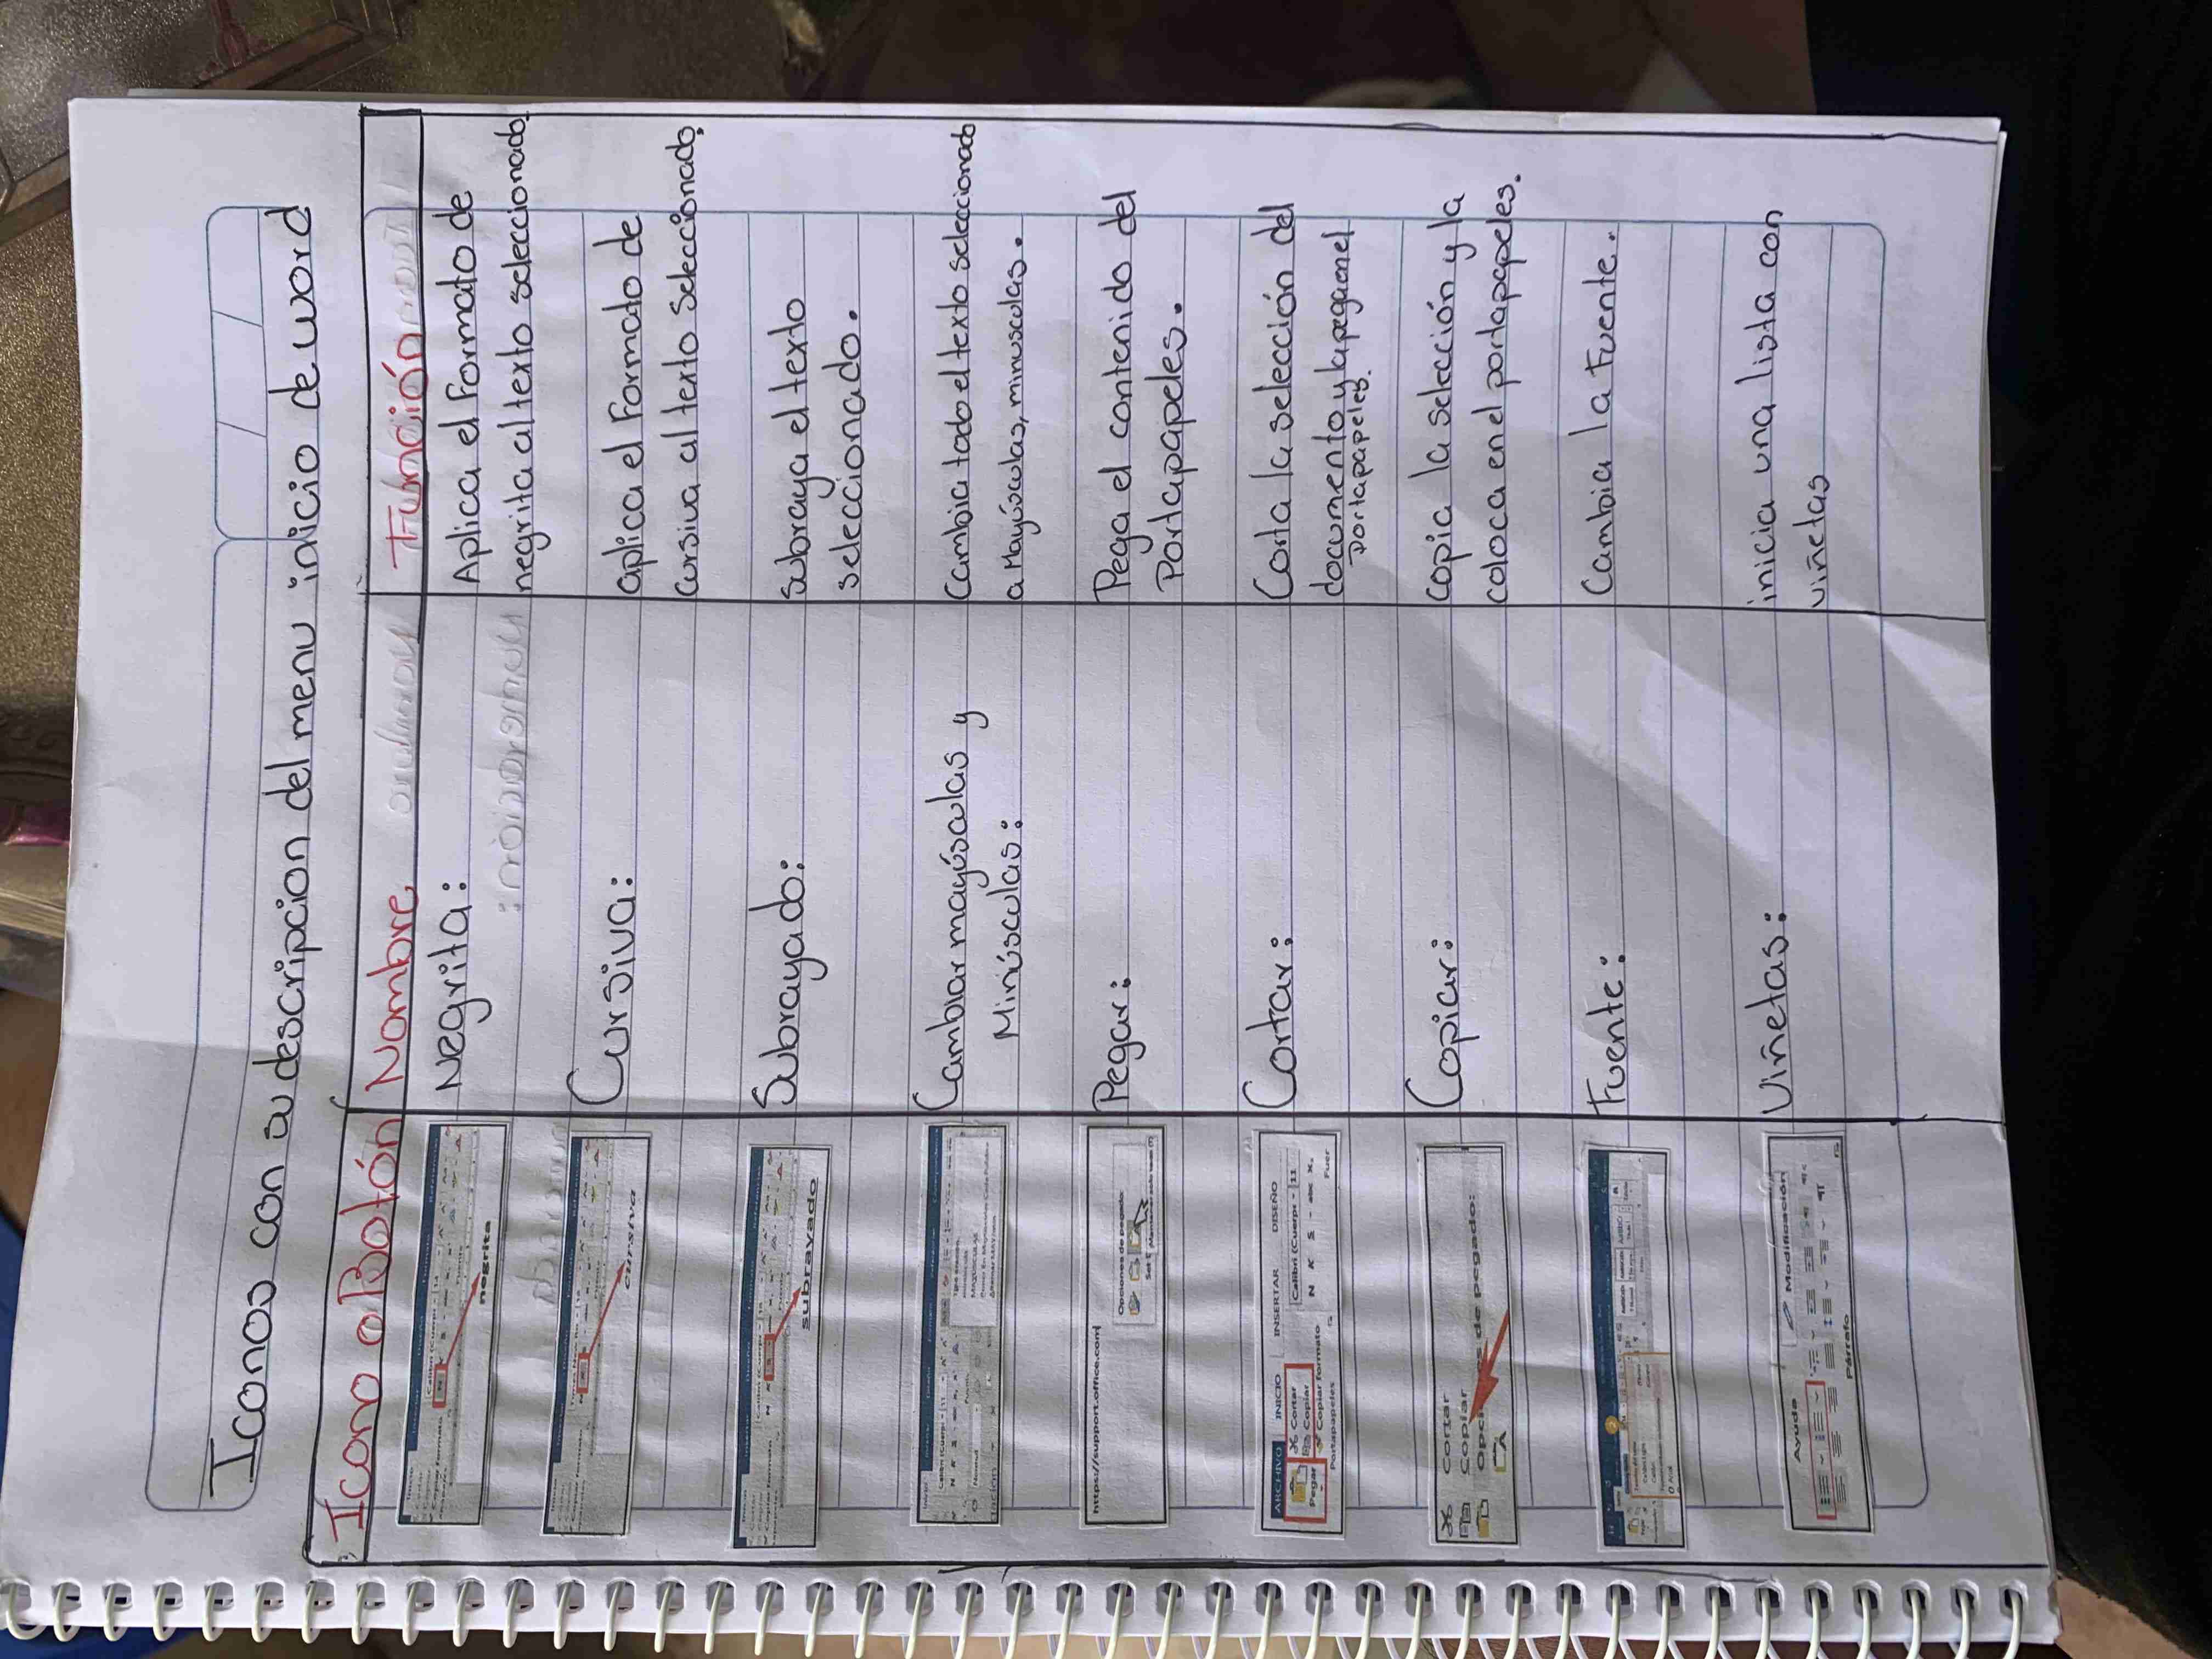 Iconos con su descripcion del menu inicio de word
Icono o Botón Nombre Función
negrita
Negrita:
Aplica el Formato de
negrita al texto seleccionado.
cursiva
Cursiva:
aplica el Formato de
cursiva al texto seleccionado.
subrayado
Subrayado:
Subraya el texto
seleccionado.
Cambiar mayúsculas y
Minúsculas:
Cambia todo el texto seleccionado
a Mayúsculas, minusculas.
https://support.office.com
Opciones de pegado:
Pegar:
Pega el contenido del
Portapapeles.
ARCHIVO INICIO INSERTAR DISEÑO
Pegar
Cortar
Copiar
Copiar formato
Portapapeles
Calibri (Cuerp 11
N K S abc x
Fuer
Cortar:
Corta la selección del
documento y la pegan el
portapapeles.
Cortar
Copiar
Opciones de pegado:
Copiar:
copia la selección y la
coloca en el portapapeles.
Fuente:
Cambia la Fuente.
Ayuda Modificación
Párrafo
Viñetas:
inicia una lista con
viñetas